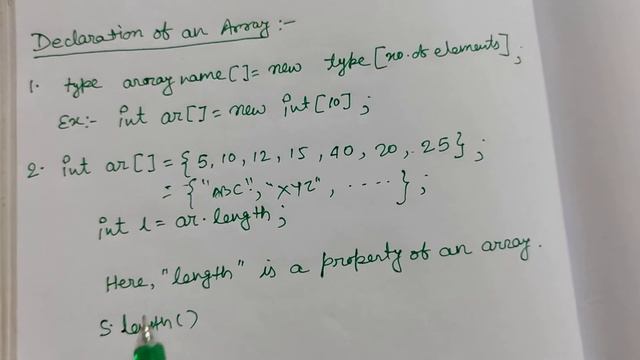 Declaration of an Array :-
1. type array name[] = new type [no. of elements];
Ex:- int ar[] = new int[10];
2. int ar[] = {5, 10, 12, 15, 40, 20, 25};
= {"ABC", "XYZ", ....};
int l = ar.length;
Here, "length" is a property of an array.
S.length()